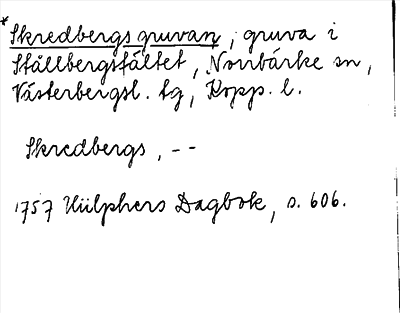 *Skredbergsgruvan, gruva i
Ställbergsfältet, Norrbärke sn,
Västerbergsl. tg, Kopp. l.
Skredbergs, --
1757 Hülphers Dagbok, s. 606.